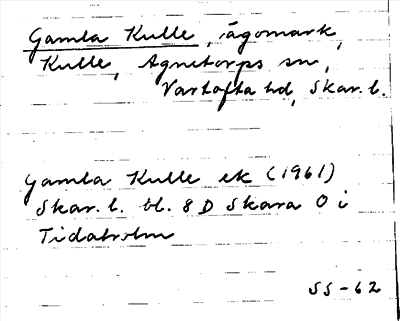 Gamla Kulle, ägomark,
Kulle, Agnetorps sn,
Vartofta hd, Skar. l.
Gamla Kulle ek (1961)
Skar. l. bl. 8 D Skara O i
Tidaholm
SS-62